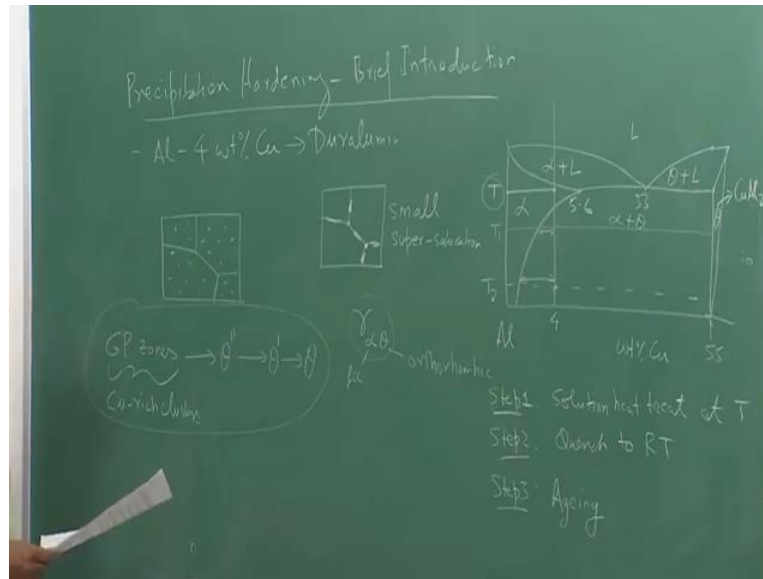 Precipitation Hardening - Brief Introduction
- Al - 4 wt% Cu → Duralumin
small
super-saturation
GP zones → θ'' → θ' → θ
Cu-rich clusters
γαθ
fcc
orthorhombic
L
α+L
θ+L
T
α
5.6
33
CuAl2
α+θ
θ
T1
T2
Al
4
wt% Cu
55
Step1. Solution heat treat at T
Step2. Quench to RT
Step3: Ageing